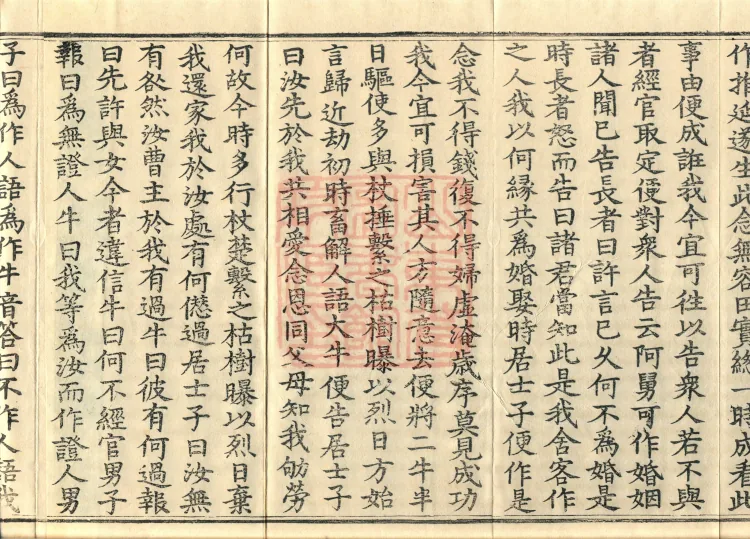 作推延遂生此念無容因實總一時成看此
事由便成誑我今宜可往以告衆人若不與
者經官取定便對衆人告云阿舅可作婚姻
諸人聞已告長者曰許言已久何不爲婚是
時長者怒而告曰諸君當知此是我舍客作
之人我以何緣共爲婚娶時居士子便作是
念我不得錢復不得婦虛淹歲序莫見成功
我今宜可損害其人方隨意去便將二牛半
日驅使多與杖捶繫之枯樹曝以烈日方始
言歸近劫初時畜解人語大牛便告居士子
曰汝先於我共相愛念恩同父母知我劬勞
何故今時多行杖楚繫之枯樹曝以烈日棄
我還家我於汝處有何愆過居士子曰汝無
有咎然汝曹主於我有過牛曰彼有何過報
曰先許與女今者違信牛曰何不經官男子
報曰爲無證人牛曰我等爲汝而作證人男
子曰爲作人語爲作牛音答曰不作人語我